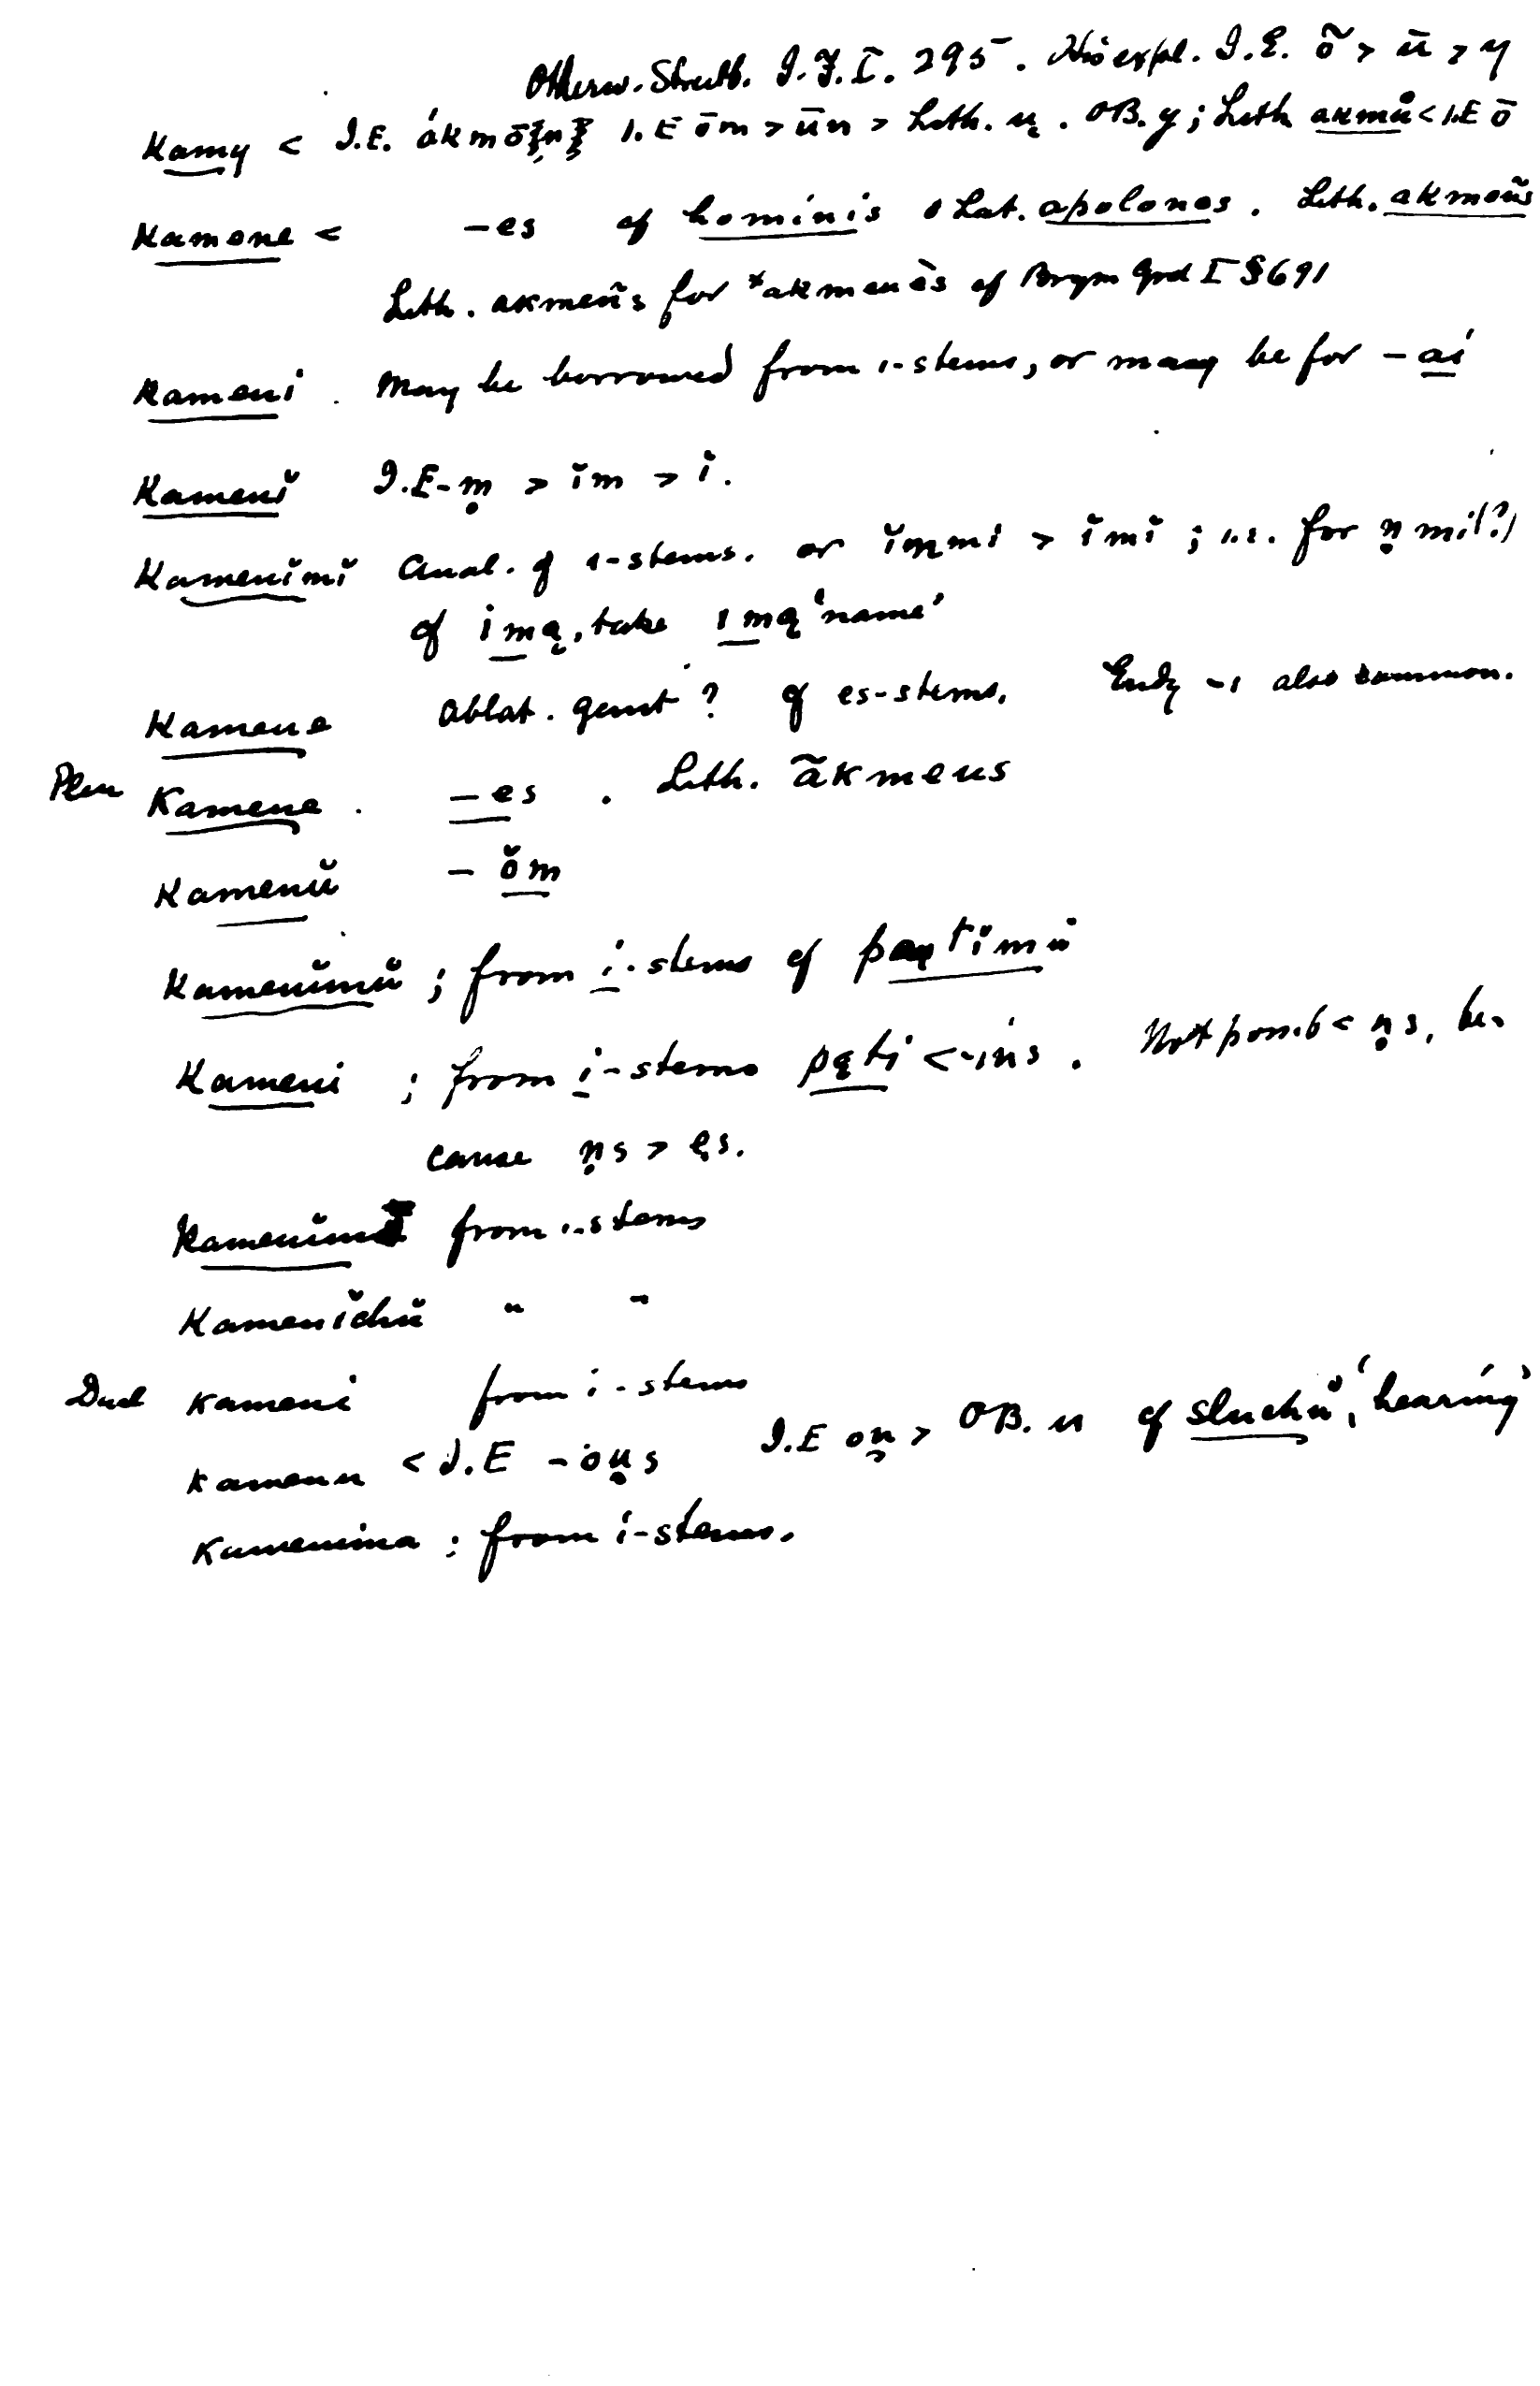 Otherw. Streitb. I.F. I. 295. His expl. I.E. õ > ū > y
Kamy < I.E. ákmō{n} I.E ōm > ūn > Lith. ų. OB. y; Lith akmů < I.E ō
Kamene < -es cf hominis O Lat. apolones. Lith. akmeñs
Lith. akmeñs for *akmenès cf Brgm Grd I §691
Kameni. May be borrowed from i-stems, or may be for -ai
Kamenĭ I.E-m̥ > ĭm > ĭ.
Kamenĭmĭ Anal. of i-stems. or ĭnmi > ĭmĭ; i.e. for n̥mi(?)
cf imę, take imę 'name'
Kamene Ablat. genit? cf es-stems. Endg -i also common.
Plu Kamene. -es. Lith. ãkmens
Kamenŭ - ŏm
Kamenĭmŭ; from i-stems cf pątĭmŭ
Kameni; from i-stems pąti < -ins. Not possib < n̥s, be-
cause n̥s > ęs.
Kamenĭmi from i-stems
Kamenĭchŭ " "
Dual Kameni from i-stems
Kamenu < I.E -ou̯s I.E ou̯ > OB. u cf sluchŭ, 'hearing'
Kamenĭma: from i-stems.